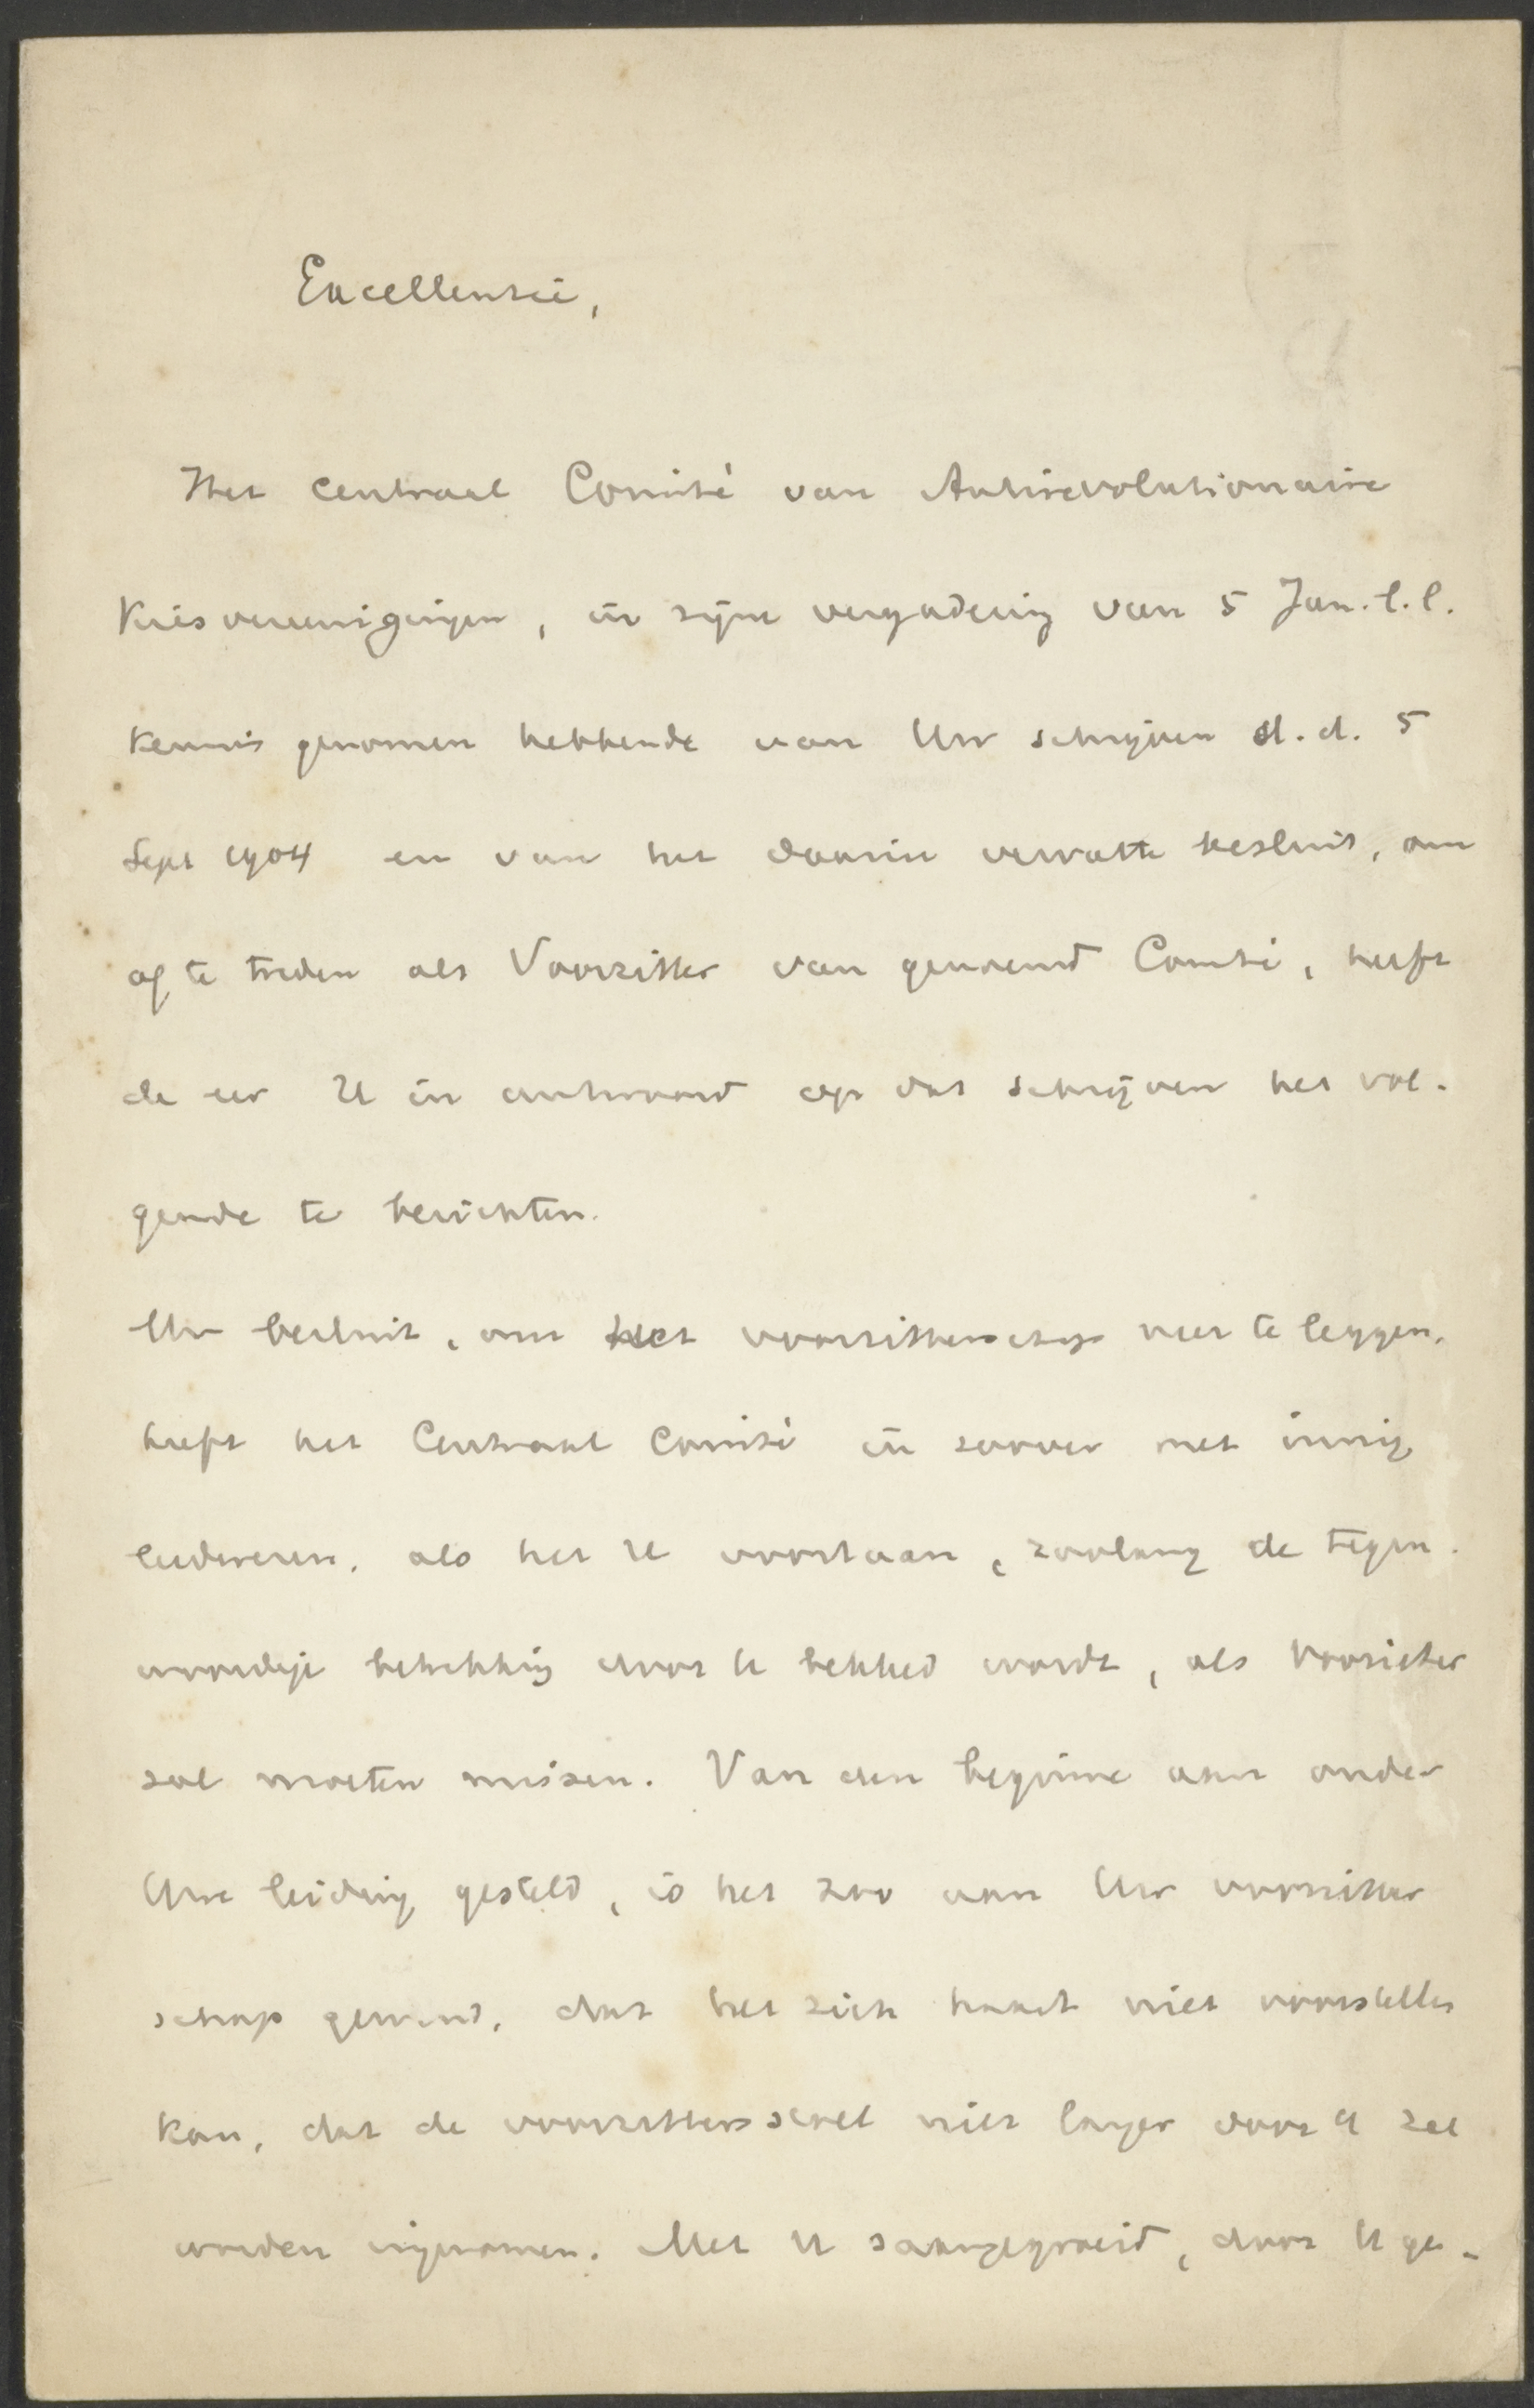 Excellentie,
Het Centraal Comité van Antirevolutionaire
Kiesvereenigingen, in zijne vergadering van 5 Jan. l.l.
kennis genomen hebbende van Uw schrijven d.d. 5
Sept 1904 en van het daarin vervatte besluit, om
af te treden als Voorzitter van genoemd Comité, heeft
de eer U in antwoord op dat schrijven het vol-
gende te berichten.
Uw besluit, om het voorzitterschap neer te leggen,
heeft het Centraal Comité in zoover met innig
leedwezen, als het U voortaan, zoolang de tegen-
woordige betrekking door U bekleed wordt, als Voorzitter
zal moeten missen. Van den beginne aan onder
Uwe leiding gesteld, is het zoo aan Uw voorzitter
schap gewend, dat het zich haast niet voorstellen
kan, dat de voorzitterszetel niet langer door U zal
worden ingenomen. Met U saamgegroeid, door U ge-